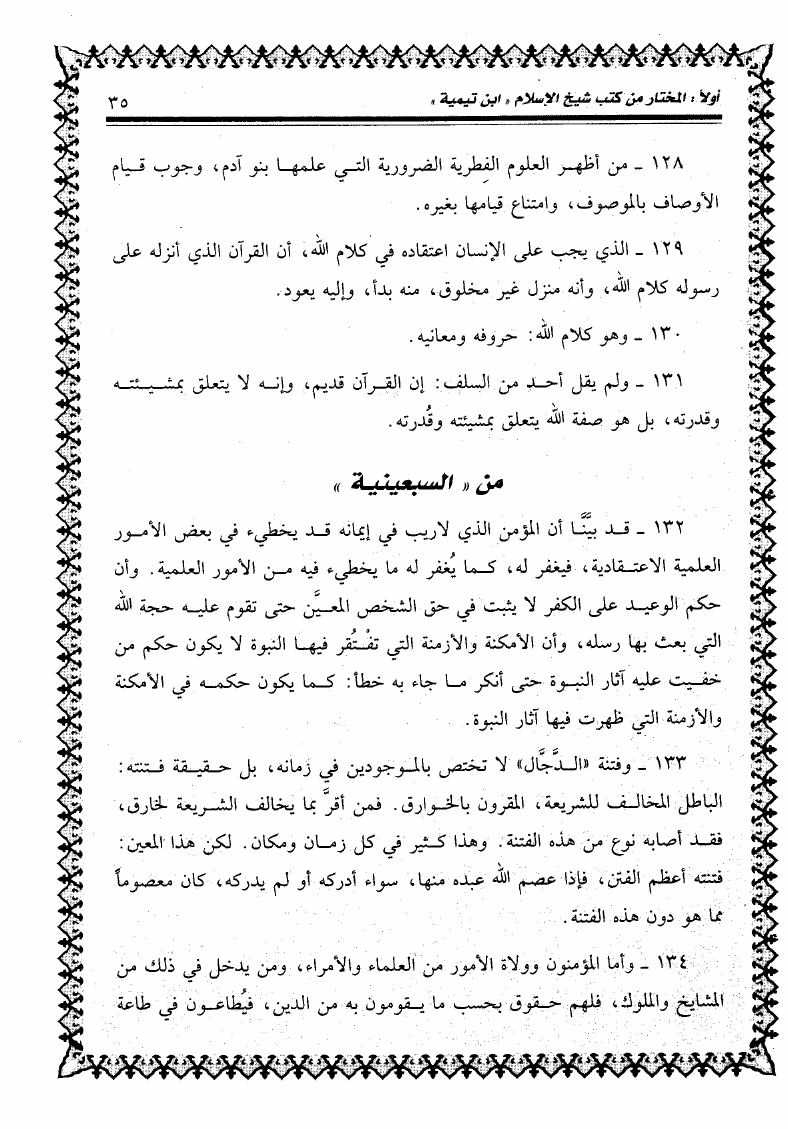 أولاً : المختار من كتب شيخ الإسلام « ابن تيمية » ٣٥
١٢٨ ـ من أظهر العلوم الفطرية الضرورية التي علمها بنو آدم، وجوب قيام
الأوصاف بالموصوف، وامتناع قيامها بغيره.
١٢٩ ـ الذي يجب على الإنسان اعتقاده في كلام الله، أن القرآن الذي أنزله على
رسوله كلام الله، وأنه منزل غير مخلوق، منه بدأ، وإليه يعود.
١٣٠ ـ وهو كلام الله: حروفه ومعانيه.
١٣١ ـ ولم يقل أحد من السلف: إن القرآن قديم، وإنه لا يتعلق بمشيئته
وقدرته، بل هو صفة الله يتعلق بمشيئته وقُدرته.
من « السبعينية »
١٣٢ ـ قد بيَّنَّا أن المؤمن الذي لاريب في إيمانه قد يخطيء في بعض الأمور
العلمية الاعتقادية، فيغفر له، كما يُغفر له ما يخطيء فيه من الأمور العلمية. وأن
حكم الوعيد على الكفر لا يثبت في حق الشخص المعيَّن حتى تقوم عليه حجة الله
التي بعث بها رسله، وأن الأمكنة والأزمنة التي تفْتُقر فيها النبوة لا يكون حكم من
خفيت عليه آثار النبوة حتى أنكر ما جاء به خطأ: كما يكون حكمه في الأمكنة
والأزمنة التي ظهرت فيها آثار النبوة.
١٣٣ ـ وفتنة «الدَّجَّال» لا تختص بالموجودين في زمانه، بل حقيقة فتنته:
الباطل المخالف للشريعة، المقرون بالخوارق. فمن أقرَّ بما يخالف الشريعة لخارق،
فقد أصابه نوع من هذه الفتنة. وهذا كثير في كل زمان ومكان. لكن هذا المعين:
فتنته أعظم الفتن، فإذا عصم الله عبده منها، سواء أدركه أو لم يدركه، كان معصوماً
مما هو دون هذه الفتنة.
١٣٤ ـ وأما المؤمنون وولاة الأمور من العلماء والأمراء، ومن يدخل في ذلك من
المشايخ والملوك، فلهم حقوق بحسب ما يقومون به من الدين، فيُطاعون في طاعة